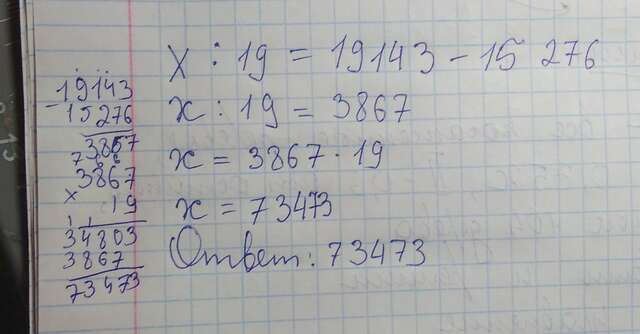 x : 19 = 19143 - 15 276
x : 19 = 3867
x = 3867 · 19
x = 73473
Ответ: 73473
- 19143
15276
3867
3867
x 19
34803
3867
73473